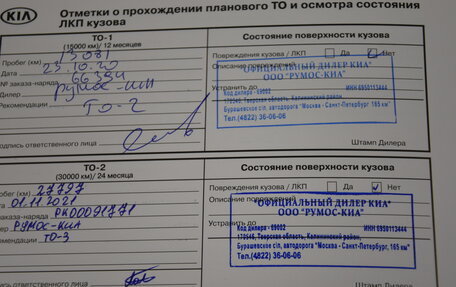 KIA
Отметки о прохождении планового ТО и осмотра состояния
ЛКП кузова
ТО-1
(15000 км) / 12 месяцев
Состояние поверхности кузова
Пробег (км) 13081
Дата 23.10.20
№ заказа-наряда 66394
Дилер Румос-Киа
Рекомендации ТО-2
Подпись ответственного лица
Повреждения кузова / ЛКП Да Нет
Описание повреждений
Устранить до
ОФИЦИАЛЬНЫЙ ДИЛЕР КИА
ООО "РУМОС-КИА"
Код дилера - 69002 ИНН 6950113444
170546, Тверская область, Калининский район,
Бурашевское с/п, автодорога "Москва - Санкт-Петербург, 165 км"
Тел.(4822) 36-06-06
Штамп Дилера
ТО-2
(30000 км) / 24 месяца
Состояние поверхности кузова
Пробег (км) 27797
Дата 01.11.2021
заказа-наряда РК00091771
Дилер Румос-Киа
Рекомендации ТО-3
ответственного лица
Повреждения кузова / ЛКП Да Нет
Описание
Устранить
ОФИЦИАЛЬНЫЙ ДИЛЕР КИА
ООО "РУМОС-КИА"
Код дилера - 69002 ИНН 6950113444
170546, Тверская область, Калининский район,
Бурашевское с/п, автодорога "Москва - Санкт-Петербург, 165 км"
Тел.(4822) 36-06-06
Штамп Дилера